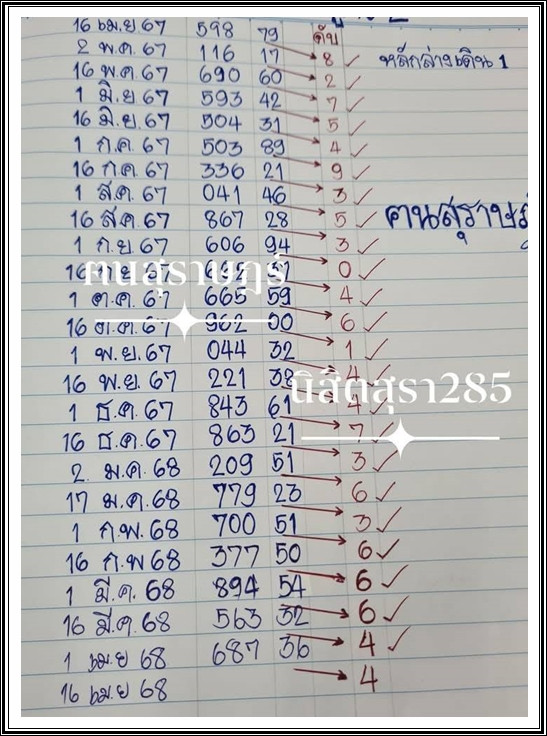 16 เม.ย 67 598 79 ดับ
2 พ.ค 67 116 17 8 ✓ หลักล่างเดิน 1
16 พ.ค 67 690 60 2 ✓
1 มิ.ย 67 593 42 7 ✓
16 มิ.ย 67 504 31 5 ✓
1 ก.ค 67 503 89 4 ✓
16 ก.ค 67 336 21 9 ✓
1 ส.ค 67 041 46 3 ✓
16 ส.ค 67 867 28 5 ✓ ฅนสุราษฎ
1 ก.ย 67 606 94 3 ✓
16 67 37 0 ✓
ฅนสุราษฎร์
1 ต.ค. 67 665 59 4 ✓
16 ต.ค. 67 962 00 6 ✓
1 พ.ย. 67 044 32 1 ✓
16 พ.ย. 67 221 38 4 ✓
นิสิตสุรา285
1 ธ.ค. 67 843 61 4 ✓
16 ธ.ค. 67 863 21 7 ✓
2 ม.ค. 68 209 51 3 ✓
17 ม.ค. 68 779 23 6 ✓
1 ก.พ. 68 700 51 3 ✓
16 ก.พ 68 377 50 6 ✓
1 มี.ค. 68 894 54 6 ✓
16 มี.ค. 68 563 32 6 ✓
1 เม.ย 68 687 36 4 ✓
16 เม.ย 68 4